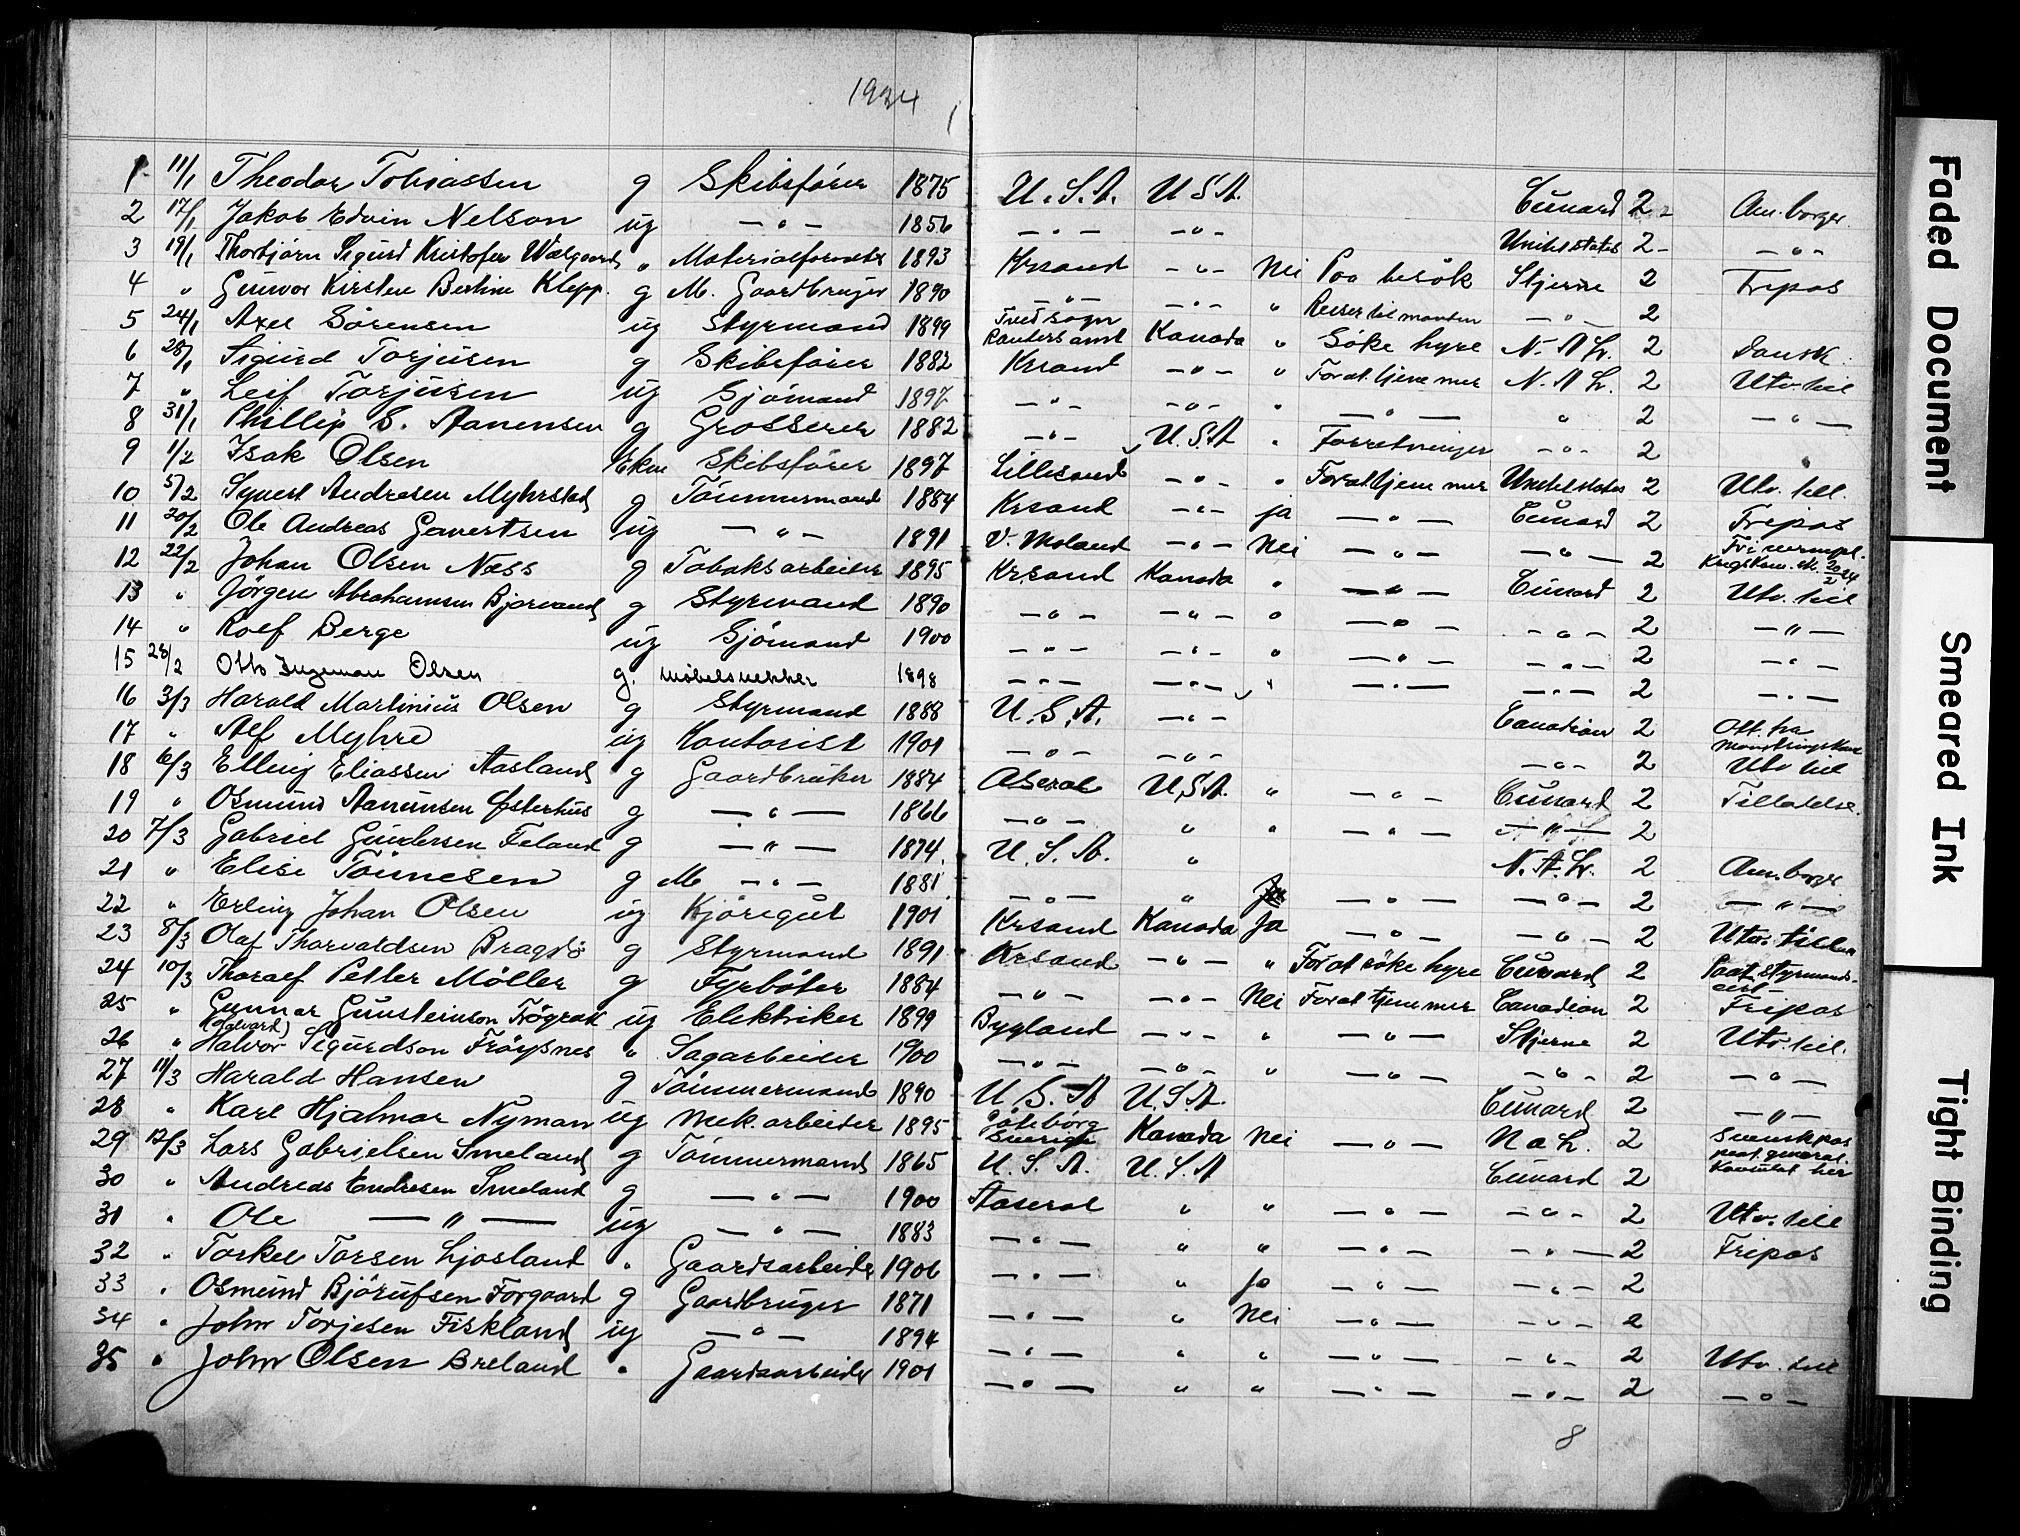 1924
1 11/1 Theodor Tobiassen g Skibsfører 1875 U.S.A. U.S.A. Cunard 2 Am. borger
2 17/1 Jakob Edvin Nelson ug — " — 1856 — " — — " — United states 2 — " —
3 19/1 Thorbjørn Sigurd Kristofer " Materialforvalter 1893 Krsand — " — Nei Paa besøk Stjerne 2 Fripas
4 " Gunvor Kirsten Bertine Klepp. g M. Gaardbruger 1890 — " — — " — " Reiser til manden — " — 2
5 24/1 Axel Sørensen ug Styrmand 1899 Tved sogn Randers amt Kanada " Søke hyre N.A.L. 2 Dansk
6 28/1 Sigurd Torjusen g Skibsfører 1882 Krsand — " — " For at tjene mer N.A.L. 2 Utv. till
7 " Leif Torjusen ug Sjømand 1897 — " — — " — " — " — " 2 — " —
8 31/1 Phillip S. Aanensen g Grosserer 1882 — " — U.S.A " Forretninger — " — 2 "
9 1/2 Isak Olsen Ekm Skibsfører 1897 Lillesand — " — " For at tjene mer United states 2 Utv. till.
10 5/2 Syvert Andresen Myhrstad g Tømmermand 1884 Krsand — " — ja — " — Cunard 2 Fripas
11 20/2 Ole Andreas Gavertsen ug — " — 1891 V. Moland — " — Nei — " — — " — 2 Fri vernepl. Krigskom. sk. 20/2 24
12 22/2 Johan Olsen Næss g Tobaksarbeider 1895 Krsand Kanada " — " — Cunard 2 Utv. till
13 " Jørgen Abrahamsen Bjorvand g Styrmand 1890 — " — — " — " — " — — " — 2 — " —
14 " Rolf Berge ug Sjømand 1900 — " — — " — " — " — — " — 2 — " —
15 28/2 Otto Ingeman Olsen g. møbelsnekker 1898 — " — — " — " — " — — " — 2 — " —
16 3/3 Harald Martinius Olsen g Styrmand 1888 U.S.A. — " — Canadian 2 Att. fra Mønstringskont
17 " Alf Myhre ug Kontorist 1901 — " — — " — — " — 2 Utv till
18 6/3 Elling Eliassen Aasland g Gaardbruker 1884 Aseral U.S.A. " — " — Cunard 2 Tillatelse.
19 " Osmund Aanensen Østerhus g — " — 1866 — " — " " — " — — " — 2
20 7/3 Gabriel Gundersen Feland g — " — 1874. U.S.A. " N.A.L. 2 Am. borger
21 " Elise Tønnesen g M — " — 1881 — " — " Ja — " — — " — 2 — " —
22 " Erling Johan Olsen ug Kjøregut 1901 Krsand Kanada Ja — " — — " — 2 Utv. till
23 8/3 Olaf Thorvaldsen Bragdø g Styrmand 1891 Krsand — " — " For at søke hyre Cunard 2 Paat. styrmands-cert
24 10/3 Thoralf Petter Møller g Fyrbøter 1884 — " — — " — Nei For at tjene mer Canadian 2 Fripas
25 " Gunnar Gunsteinson ug Elektriker 1899 Bygland — " — " — " — Stjerne 2 Utv. till.
26 " (Halvard) Halvor Sigurdson Frøysnes " Sagarbeider 1900 — " — — " — " — " — — " — 2 — " —
27 11/3 Harald Hansen g Tømmermand 1890 U.S.A U.S.A. Cunard 2 — " —
28 " Karl Hjalmar Nyman ug Mek. arbeider 1895 Gøteborg Sverige Kanada Nei — " — N a L. 2 Svensk pas paat. general. Konsulat her
29 12/3 Lars Gabrielsen Smeland g Tømmermand 1865 U.S.A. U.S.A Cunard 2
30 " Andreas Endresen Smeland g — " — 1900 Aaseral " " — " — — " — 2 Utv. till
31 " Ole — " — ug — " — 1883 — " — " " — " — — " — 2 Fripas
32 " Torkel Torsen Ljosland " Gaardsarbeider 1906 — " — " Ja — " — — " — 2
33 " Osmund Bjørufsen Forgaard g Gaardbruger 1871 — " — " Nei — " — — " — 2
34 " John Torjesen Fiskland ug — " — 1894 — " — " " — " — — " — 2 Utv. till
35 " John Olsen Breland " Gaardsarbeider 1901 — " — " " — " — — " — 2 — " —
8
Faded Document
Smeared Ink
Tight Binding